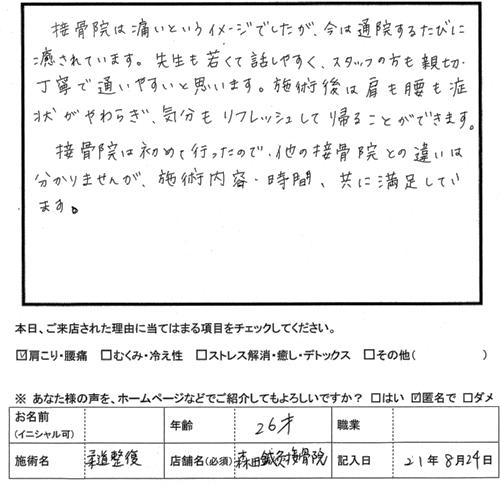 接骨院は痛いというイメージでしたが、今は通院するたびに
癒されています。先生も若くて話しやすく、スタッフの方も親切・
丁寧で通いやすいと思います。施術後は肩も腰も症
状がやわらぎ、気分もリフレッシュして帰ることができます。
接骨院は初めて行ったので、他の接骨院との違いは
分かりませんが、施術内容・時間、共に満足してい
ます。
本日、ご来店された理由に当てはまる項目をチェックしてください。
☑肩こり・腰痛 □むくみ・冷え性 □ストレス解消・癒し・デトックス □その他( )
※ あなた様の声を、ホームページなどでご紹介してもよろしいですか? □はい ☑匿名で □ダメ
お名前
(イニシャル可) 年齢 26才 職業
施術名 柔道整復 店舗名(必須) 森田鍼灸接骨院 記入日 21年8月24日